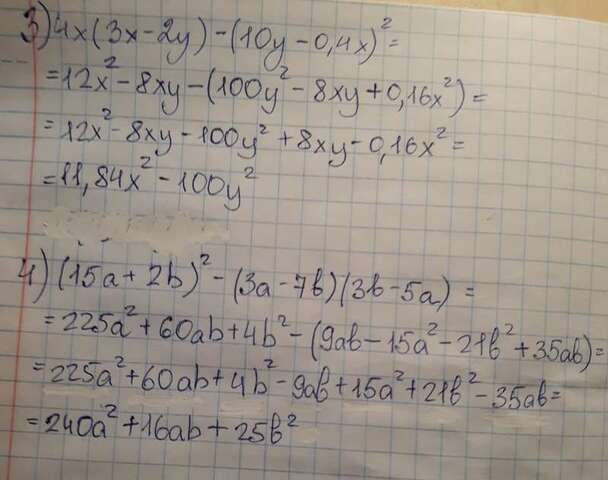 3) 4x(3x-2y)-(10y-0,4x)²=
=12x²-8xy-(100y²-8xy+0,16x²)=
=12x²-8xy-100y²+8xy-0,16x²=
=11,84x²-100y²
4) (15a+2b)²-(3a-7b)(3b-5a)=
=225a²+60ab+4b²-(9ab-15a²-21b²+35ab)=
=225a²+60ab+4b²-9ab+15a²+21b²-35ab=
=240a²+16ab+25b²